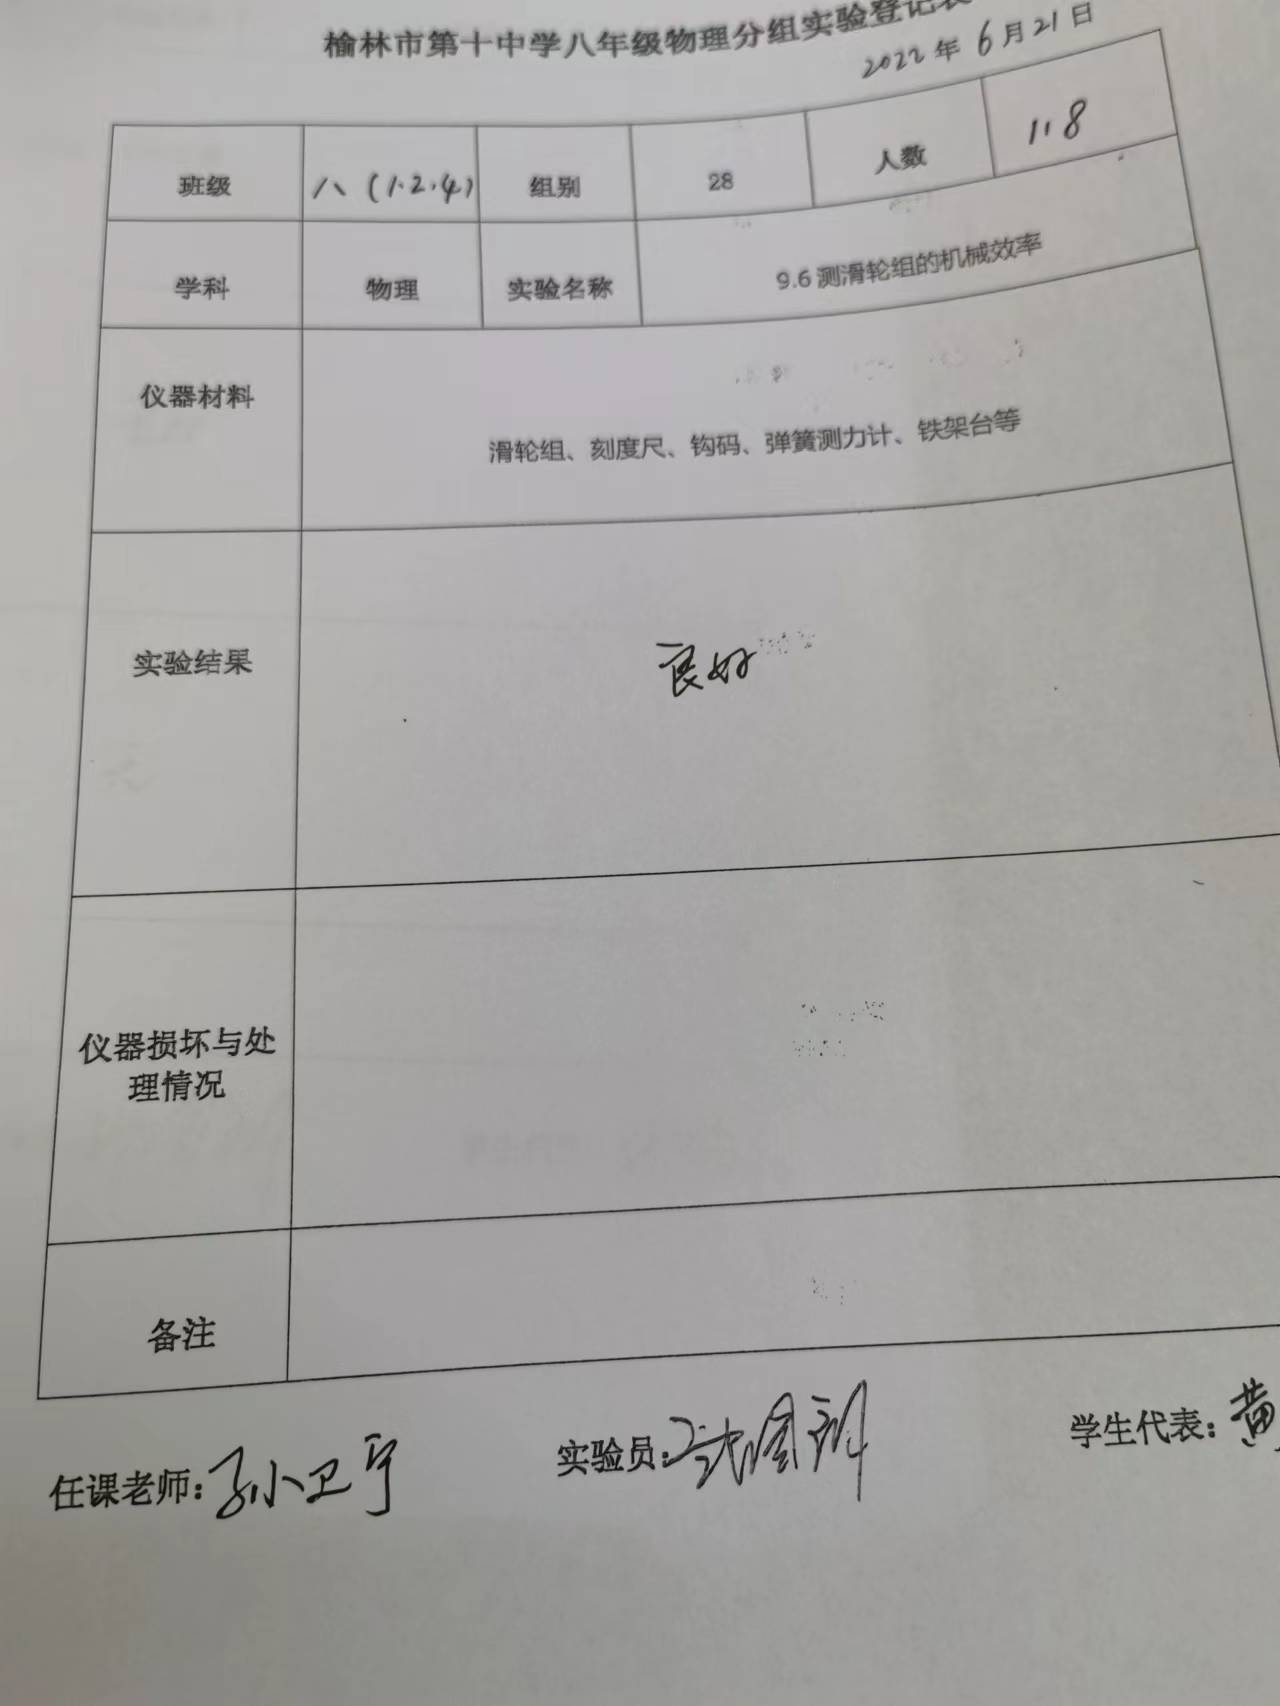 榆林市第十中学八年级物理分组实验登记表
2022年6月21日
班级 八(1.2.4) 组别 28 人数 118
学科 物理 实验名称 9.6测滑轮组的机械效率
仪器材料 滑轮组、刻度尺、钩码、弹簧测力计、铁架台等
实验结果 良好
仪器损坏与处
理情况
备注
任课老师: 孙小卫宁 实验员: 学生代表: 黄